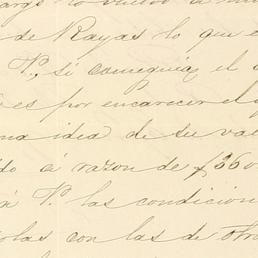 de Rayas lo que e
V., si conseguia el a
es por encarecer el
una idea de su va
do á razon de $360
á V. las condicion
olas con las de otro